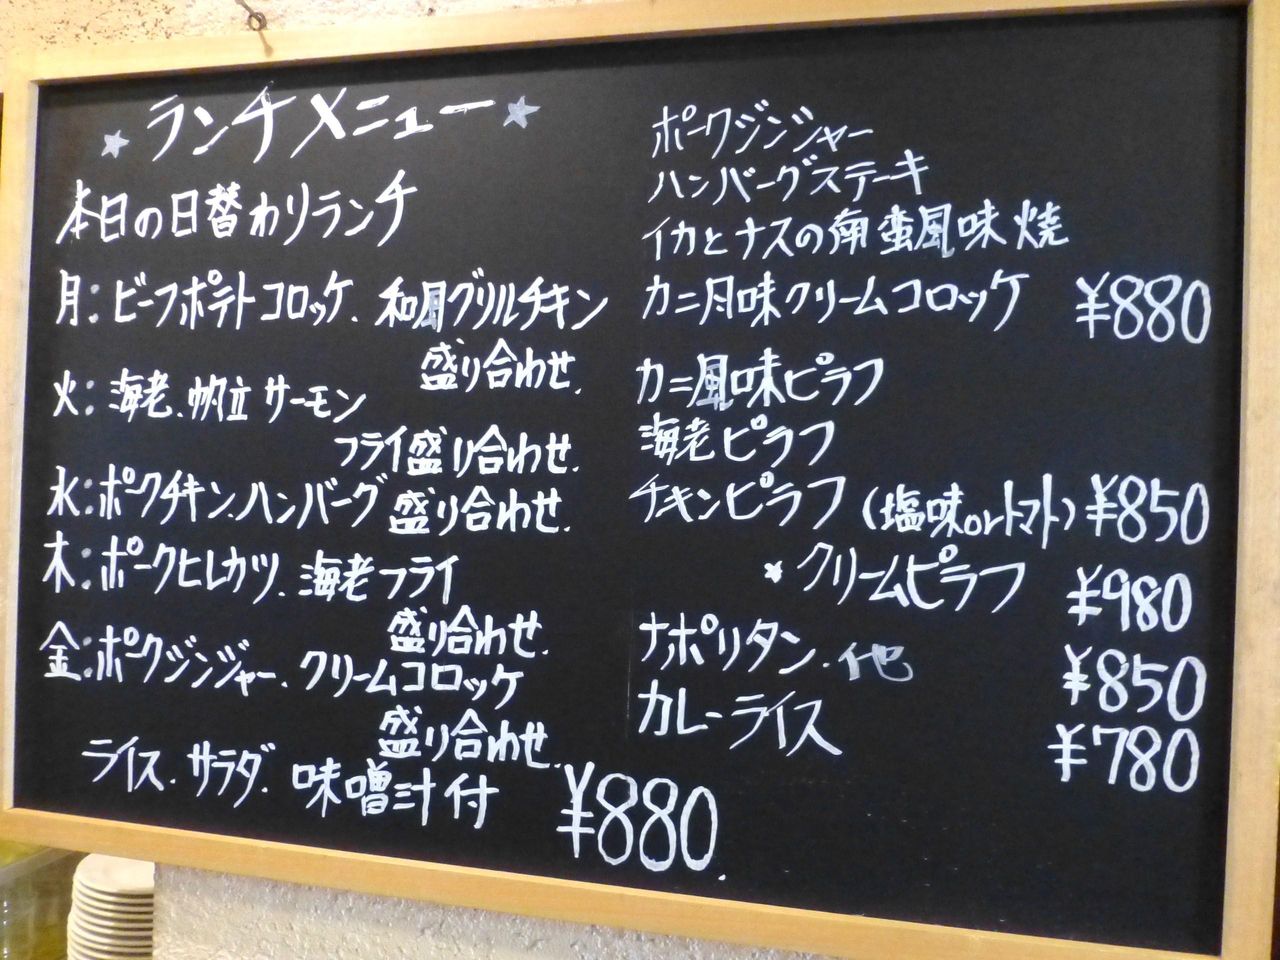 ★ランチメニュー★
本日の日替わりランチ
月：ビーフポテトコロッケ、和風グリルチキン
盛り合わせ.
火：海老、帆立サーモン
フライ盛り合わせ.
水：ポークチキン、ハンバーグ盛り合わせ.
木：ポークヒレカツ、海老フライ
盛り合わせ.
金：ポークジンジャー、クリームコロッケ
盛り合わせ.
ライス、サラダ、味噌汁付 ¥880.
ポークジンジャー
ハンバーグステーキ
イカとナスの南蛮風味焼
カニ風味クリームコロッケ ¥880
カニ風味ピラフ
海老ピラフ
チキンピラフ(塩味orトマト) ¥850
*クリームピラフ ¥980
ナポリタン、他 ¥850
カレーライス ¥780